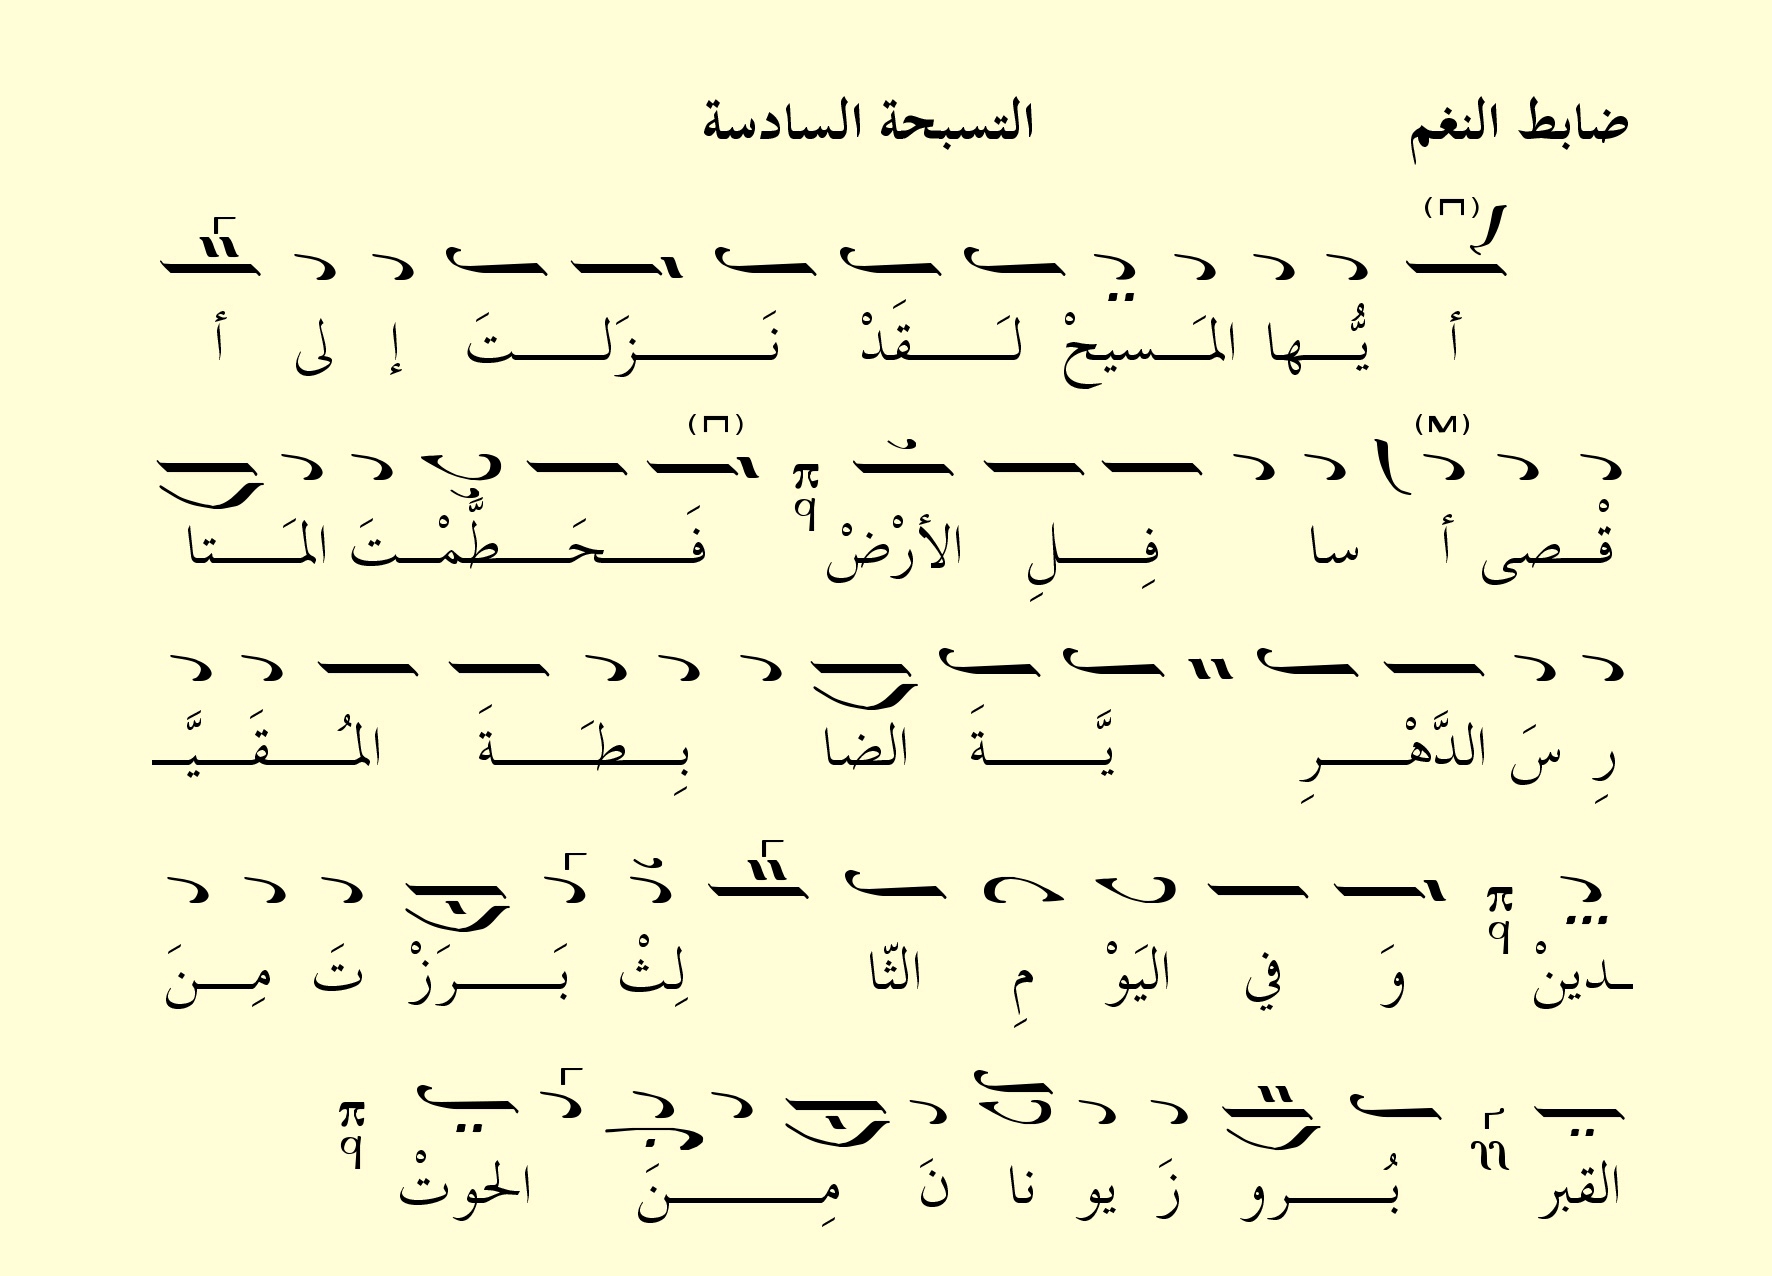 ضابط النغم التسبحة السادسة
أ يُّـها المَـسيحْ لَـقَدْ نَـزَلـتَ إ لى أ
قْـصى أ سا فِـلِ الأرْضْ فَـحَـطَّـمْـتَ المَـتا
رِ سَ الدَّهْـرِ يَّـةَ الضا بِـطَـةَ المُـقَـيَّـ
ـدينْ وَ في اليَوْ مِ الثّا لِثْ بَـرَزْ تَ مِـنَ
القبر بُـرو زَ يو نا نَ مِـنَ الحوتْ